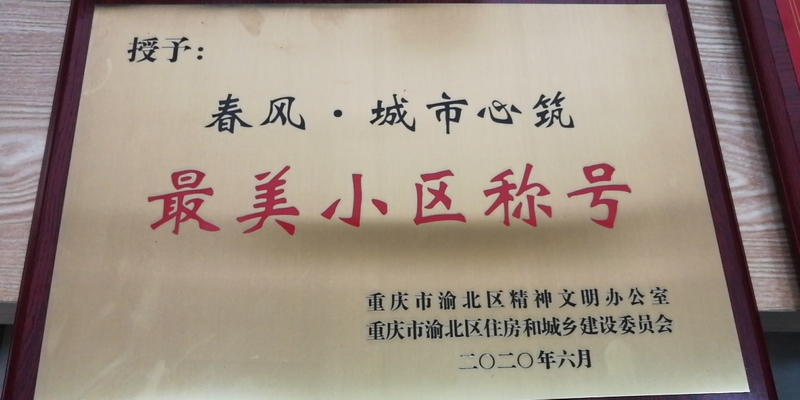 授予：
春风·城市心筑
最美小区称号
重庆市渝北区精神文明办公室
重庆市渝北区住房和城乡建设委员会
二〇二〇年六月